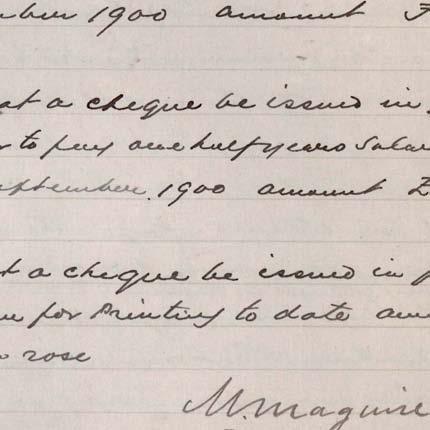 ber 1900 amount
at a cheque be issued in
to pay one half years Salar
eptember 1900 amount £
t a cheque be issued in p
for Printing to date amo
rose
M. Maguire